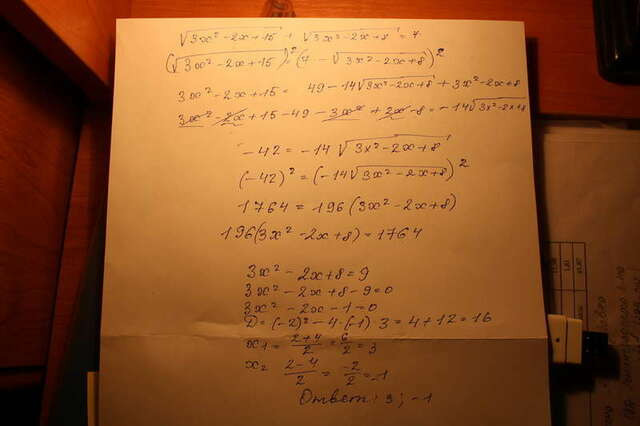 √3x² - 2x + 15 + √3x² - 2x + 8 = 7
(√3x² - 2x + 15)² = (7 - √3x² - 2x + 8)²
3x² - 2x + 15 = 49 - 14√3x² - 2x + 8 + 3x² - 2x + 8
3x² - 2x + 15 - 49 - 3x² + 2x - 8 = -14√3x² - 2x + 8
-42 = -14√3x² - 2x + 8
(-42)² = (-14√3x² - 2x + 8)²
1764 = 196(3x² - 2x + 8)
196(3x² - 2x + 8) = 1764
3x² - 2x + 8 = 9
3x² - 2x + 8 - 9 = 0
3x² - 2x - 1 = 0
D = (-2)² - 4·(-1) 3 = 4 + 12 = 16
x₁ = (2+4)/2 = 6/2 = 3
x₂ (2-4)/2 = -2/2 = -1
Ответ: 3; -1